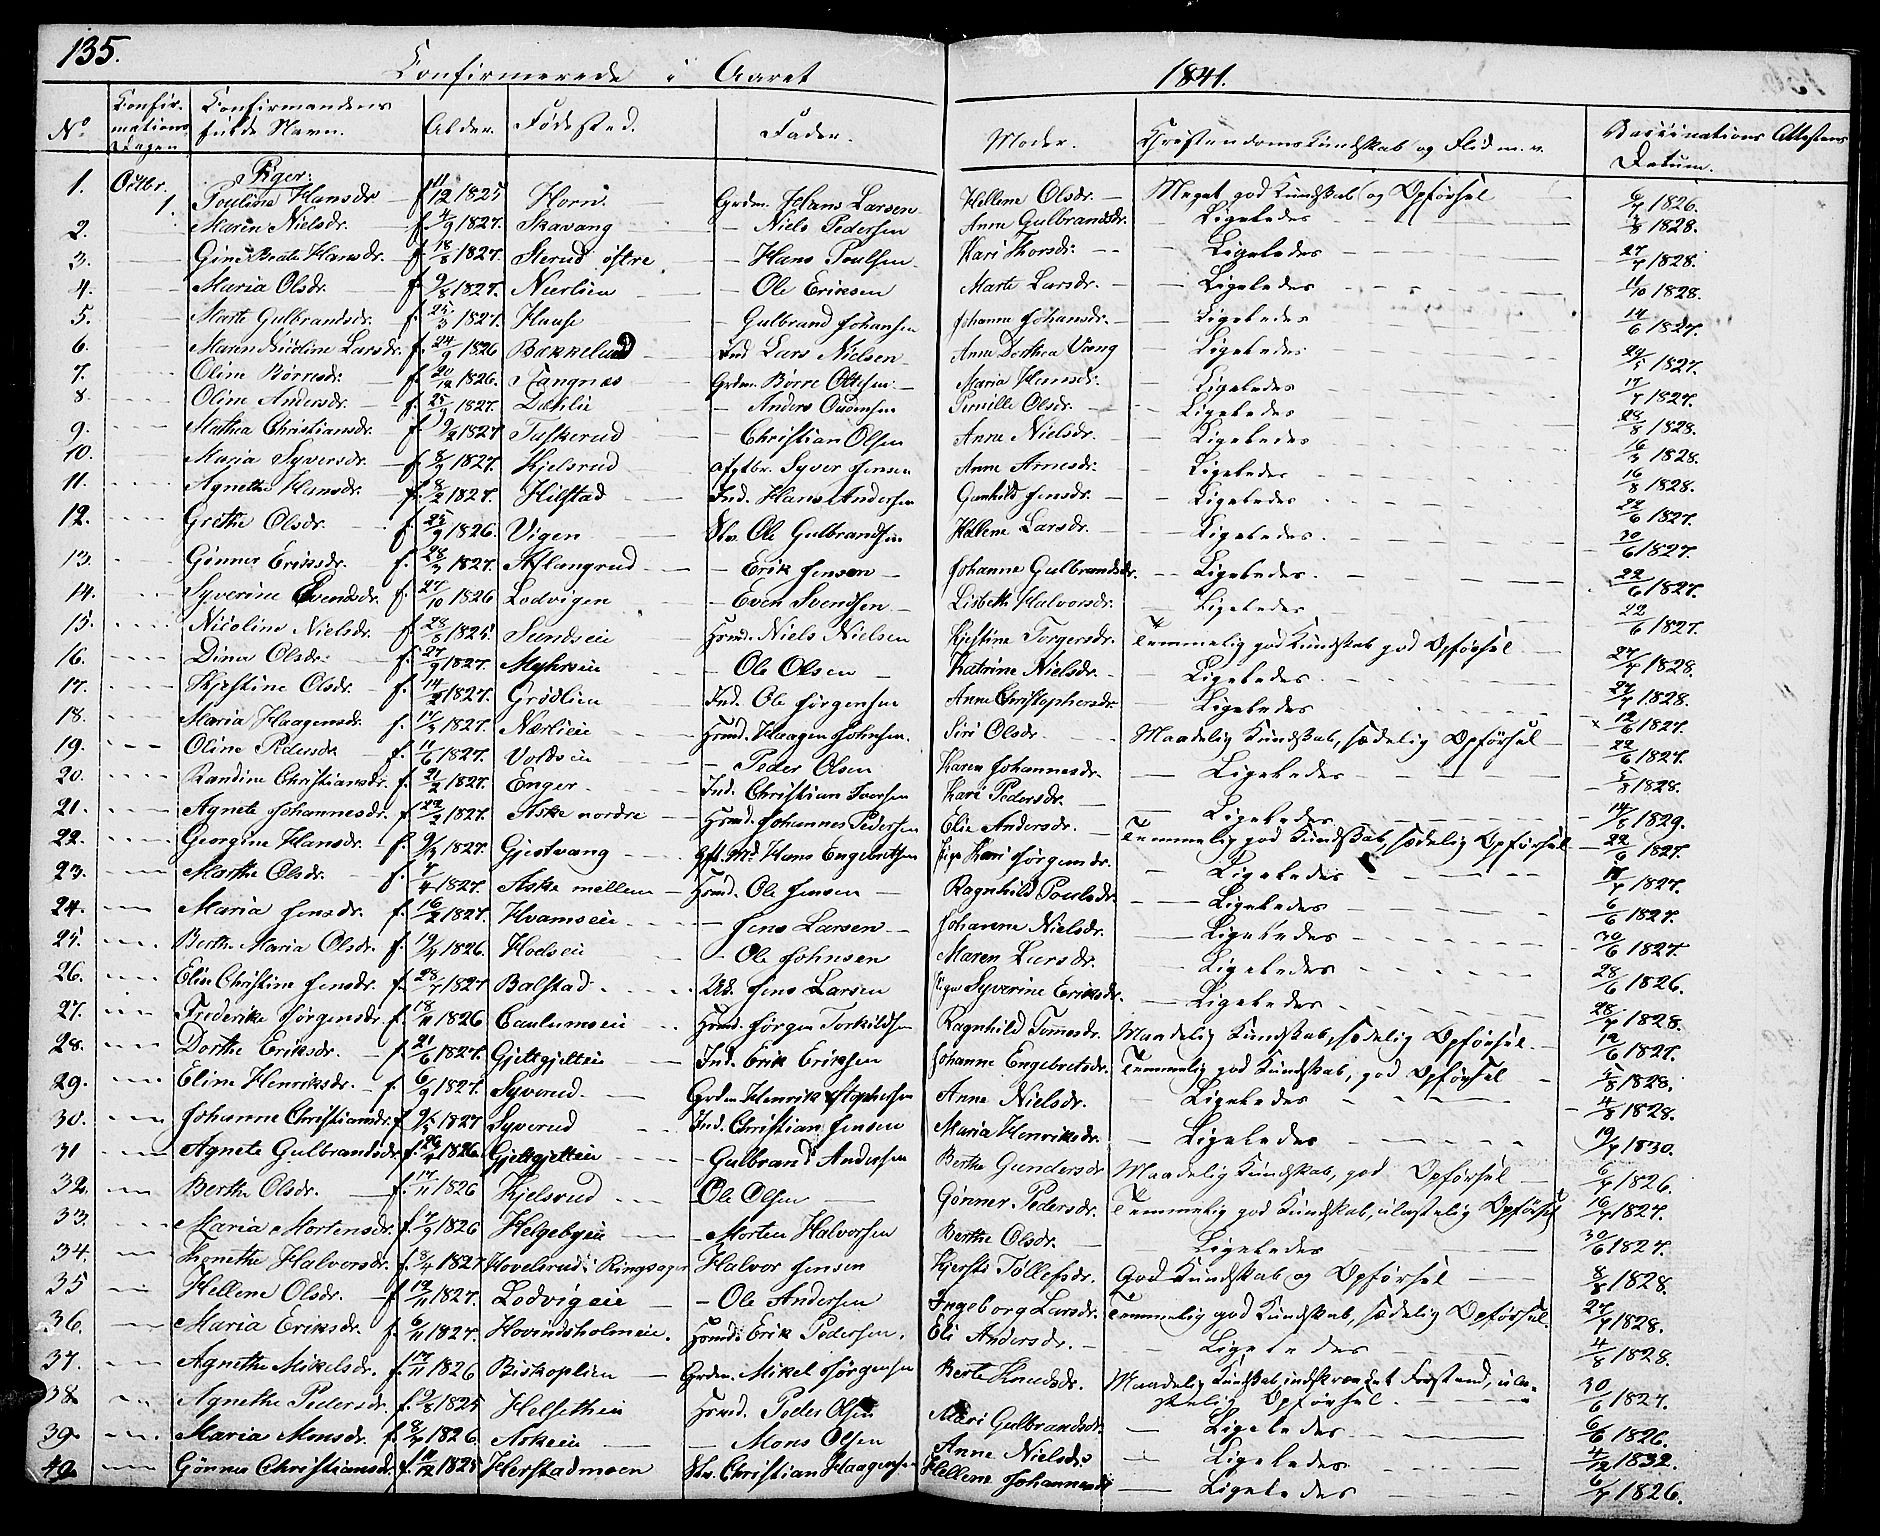 135.
Confirmerede i Aaret 1841.
No Confirmations Dagen Confirmandens fulde Navn. Alder. Fødested. Fader. Moder. Christendoms Kundskab og Flid m. v. Vaccinations Attestens Datum.
Piger:
1. Octbr. 1. Pouline Hansdr f 11/12 1825 Horn Grdm. Hans Larsen Hellene Olsdr. Meget god Kundskab og Opførsel 6/7 1826.
2. Maren Nielsdr. f. 4/9 1827. Skavang Niels Pedersen Anne Gulbrandsdr. Ligeledes 7/8 1828.
3. Gine Beate Hansdr. f. 18/8 1827. Sterud østre Hans Poulsen Kari Thorsdr: Ligeledes 27/7 1828.
4. Maria Olsdr. f. 9/8 1827. Nærlien Ole Eriksen Marte Larsdr. Ligeledes 11/10 1828.
5. Marte Gulbrandsdr. f. 25/3 1827. Hause Gulbrand Johansen Johanne Johansdr. Ligeledes 14/6 1827.
6. Maren Larsdr. f. 24/9 1826 Bakkelund Ind Lars Nielsen Anne Dorthea Vang Ligeledes 24/5 1827.
7. Oline Børresdr. f. 20/12 1826. Stangnæs Grdm. Børre Ottesen Maria Hansdr. Ligeledes 17/7 1827.
8. Oline Andersdr. f. 25/9 1827. Dæhlie Anders Pernille Olsdr. Ligeledes 28/8 1828.
9. Mathea Christiansdr. f 9/2 1827 Tuskerud Christian Olsen Anne Nielsdr. Ligeledes 16/3 1828.
10. Maria Syversdr. f. 8/9 1827. Kjelsrud Syver Jensen Anne Arnesdr: Ligeledes 16/8 1828.
11. Agnethe Hansdr. f. 8/2 1827. Hilstad Ind. Hans Andersen Gunhild Jensdr. Ligeledes 22/6 1827.
12. Grethe Olsdr. f. 25/9 1826. Vigen Ole Gulbrandsen Hellene Larsdr. Ligeledes. 30/6 1827.
13. Gønner Eriksdr. f. 28/3 1827. Aslangrud Erik Jensen Johanne Gulbrandsdr. Ligeledes. 22/6 1827.
14. Syverine Evensdr. f. 27/10 1826 Lodvigen Even Svendsen Lisbeth Halvorsdr. Ligeledes 22/6 1827.
15. Nicoline Nielsdr. f. 28/8 1825. Sundseie Hsmd. Niels Nielsen Kjestine Torgersdr. Temmelig god Kundskab god Opførsel 27/7 1828.
16. Dina Olsdr. f. 27/9 1827. Myhreie Ole Olsen Katrine Nielsdr. Ligeledes. 27/7 1828.
17. Kjestine Olsdr. f. 14/2 1827. Grødlien Ind. Ole Jørgensen Anne Christophersdr. Ligeledes 12/6 1827.
18. Maria Haagensdr. f. 17/3 1827. Nærlieie Hsmd. Haagen Johnsen. Siri Olsdr. Maadelig Kundskab, sædelig Opførsel 22/6 1827.
19. Oline Pedersdr f. 11/6 1827. Voldseie Peder Olsen Karen Johannesdr. Ligeledes 5/8 1828.
20. Randine Christiansdr. f. 21/2 1827. Enger Ind. Christian Iversen Kari Pedersdr.
21. Agnete Johannesdr. f. 22/3 1827. Aske nordre Hsmd. Johannes Pedersen Elie Andersdr. Ligeledes 14/8 1829.
22. Georgine Hansdr. f. 9/4 1827. Gjestvang Hans Engebretsen Pige Kari Jørgensdr. Temmelig god Kundskab, sædelig Opførsel 22/6 1827.
23. Marthe Olsdr. f. 7/4 1827. Aske mellem Hsmd. Ole Jensen Ragnhild Poulsdr. Ligeledes 17/7 1827.
24. Maria Jensdr. f. 16/2 1827. Hvamseie Jens Larsen Johanne Nielsdr. Ligeledes 6/6 1827.
25. Berthe Maria Olsdr. f. 19/4 1826. Hodseie Ole Johnsen Maren Larsdr. Ligeledes 30/6 1827.
26. Elin Christine Jensdr. f. 28/7 1827 Balstad Jens Larsen Pige Syverine Eriksdr. Ligeledes 28/6 1826.
27. Frederikke Jørgensdr f. 18/11 1826 Caulumseie Hsmd. Jørgen Torkildsen Ragnhild Tomesdr. Maadelig Kundskab, sædelig Opførsel. 28/7 1828.
28. Dorthe Eriksdr. f. 21/6 1827. Gjeltgjelteie Ind. Erik Eriksen Johanne Engebretsdr. Temmelig god Kundskab, god Opførsel 12/6 1827.
29. Eline Henriksdr. f. 6/9 1827. Syverud. Grdm. Henrik Anne Nielsdr. Ligeledes 5/8 1828.
30. Johanne Christiansdr. f. 9/5 1827 Syverud Ind. Christian Jensen Maria Henriksdr. Ligeledes 4/8 1828.
31 Agnete Gulbrandsdr. f. 23/7 1826. Gjeltgjelteie Gulbrand Andersen Berthe Gundersdr Maadelig Kundskab, god Opførsel 19/7 1830.
32. Berthe Olsdr. f. 17/11 1826 Kjelsrud Ole Olsen Gønner Pedersdr. Temmelig god Kundskab, ulastelig Opførsel 6/7 1826.
33. Maria Mortensdr. f. 7/9 1826 Helgebyeie Morten Halvorsen Berthe Olsdr. Ligeledes 16/7 1827.
34. Tonethe Halvorsdr. f. 8/4 1827 Hovelsrud i Ringsager Halvor Jensen Kjersti Tollefsdr. God Kundskab og Opførsel 30/6 1827.
35 Hellene Olsdr. f. 19/11 1827. Lodvigeie Ole Andersen Ingeborg Larsdr. Temmelig god Kundskab, sædelig Opførsel. 8/8 1828.
36. Maria Eriksdr. f. 6/11 1827. Hovindsholmeie. Hsmd: Erik Pedersen. Eli Andersdr. Ligeledes 27/7 1828.
37. Agnethe Mikelsdr. f. 17/11 1826 Biskoplien Grdm. Mikel Jørgensen Berte Knudsdr. Maadelig Kundskab, indskrænket Forstand, ulastelig Opførsel. 4/8 1828.
38 Agnethe Pedersdr. f. 9/8 1825 Helsetheie Hsmd. Peder Olsen Mari Gulbrandsdr. Ligeledes 30/6 1827.
39. Maria Monsdr. f. 8/7 1826. Askeie Mons Olsen Anne Nielsdr Ligeledes 6/6 1826.
40 Gønner Christiansdr. f. 11/12 1825 Herstadmoen Christian Haagensen Hellene Johannesdr Ligeledes 4/12 1832.
6/7 1826.